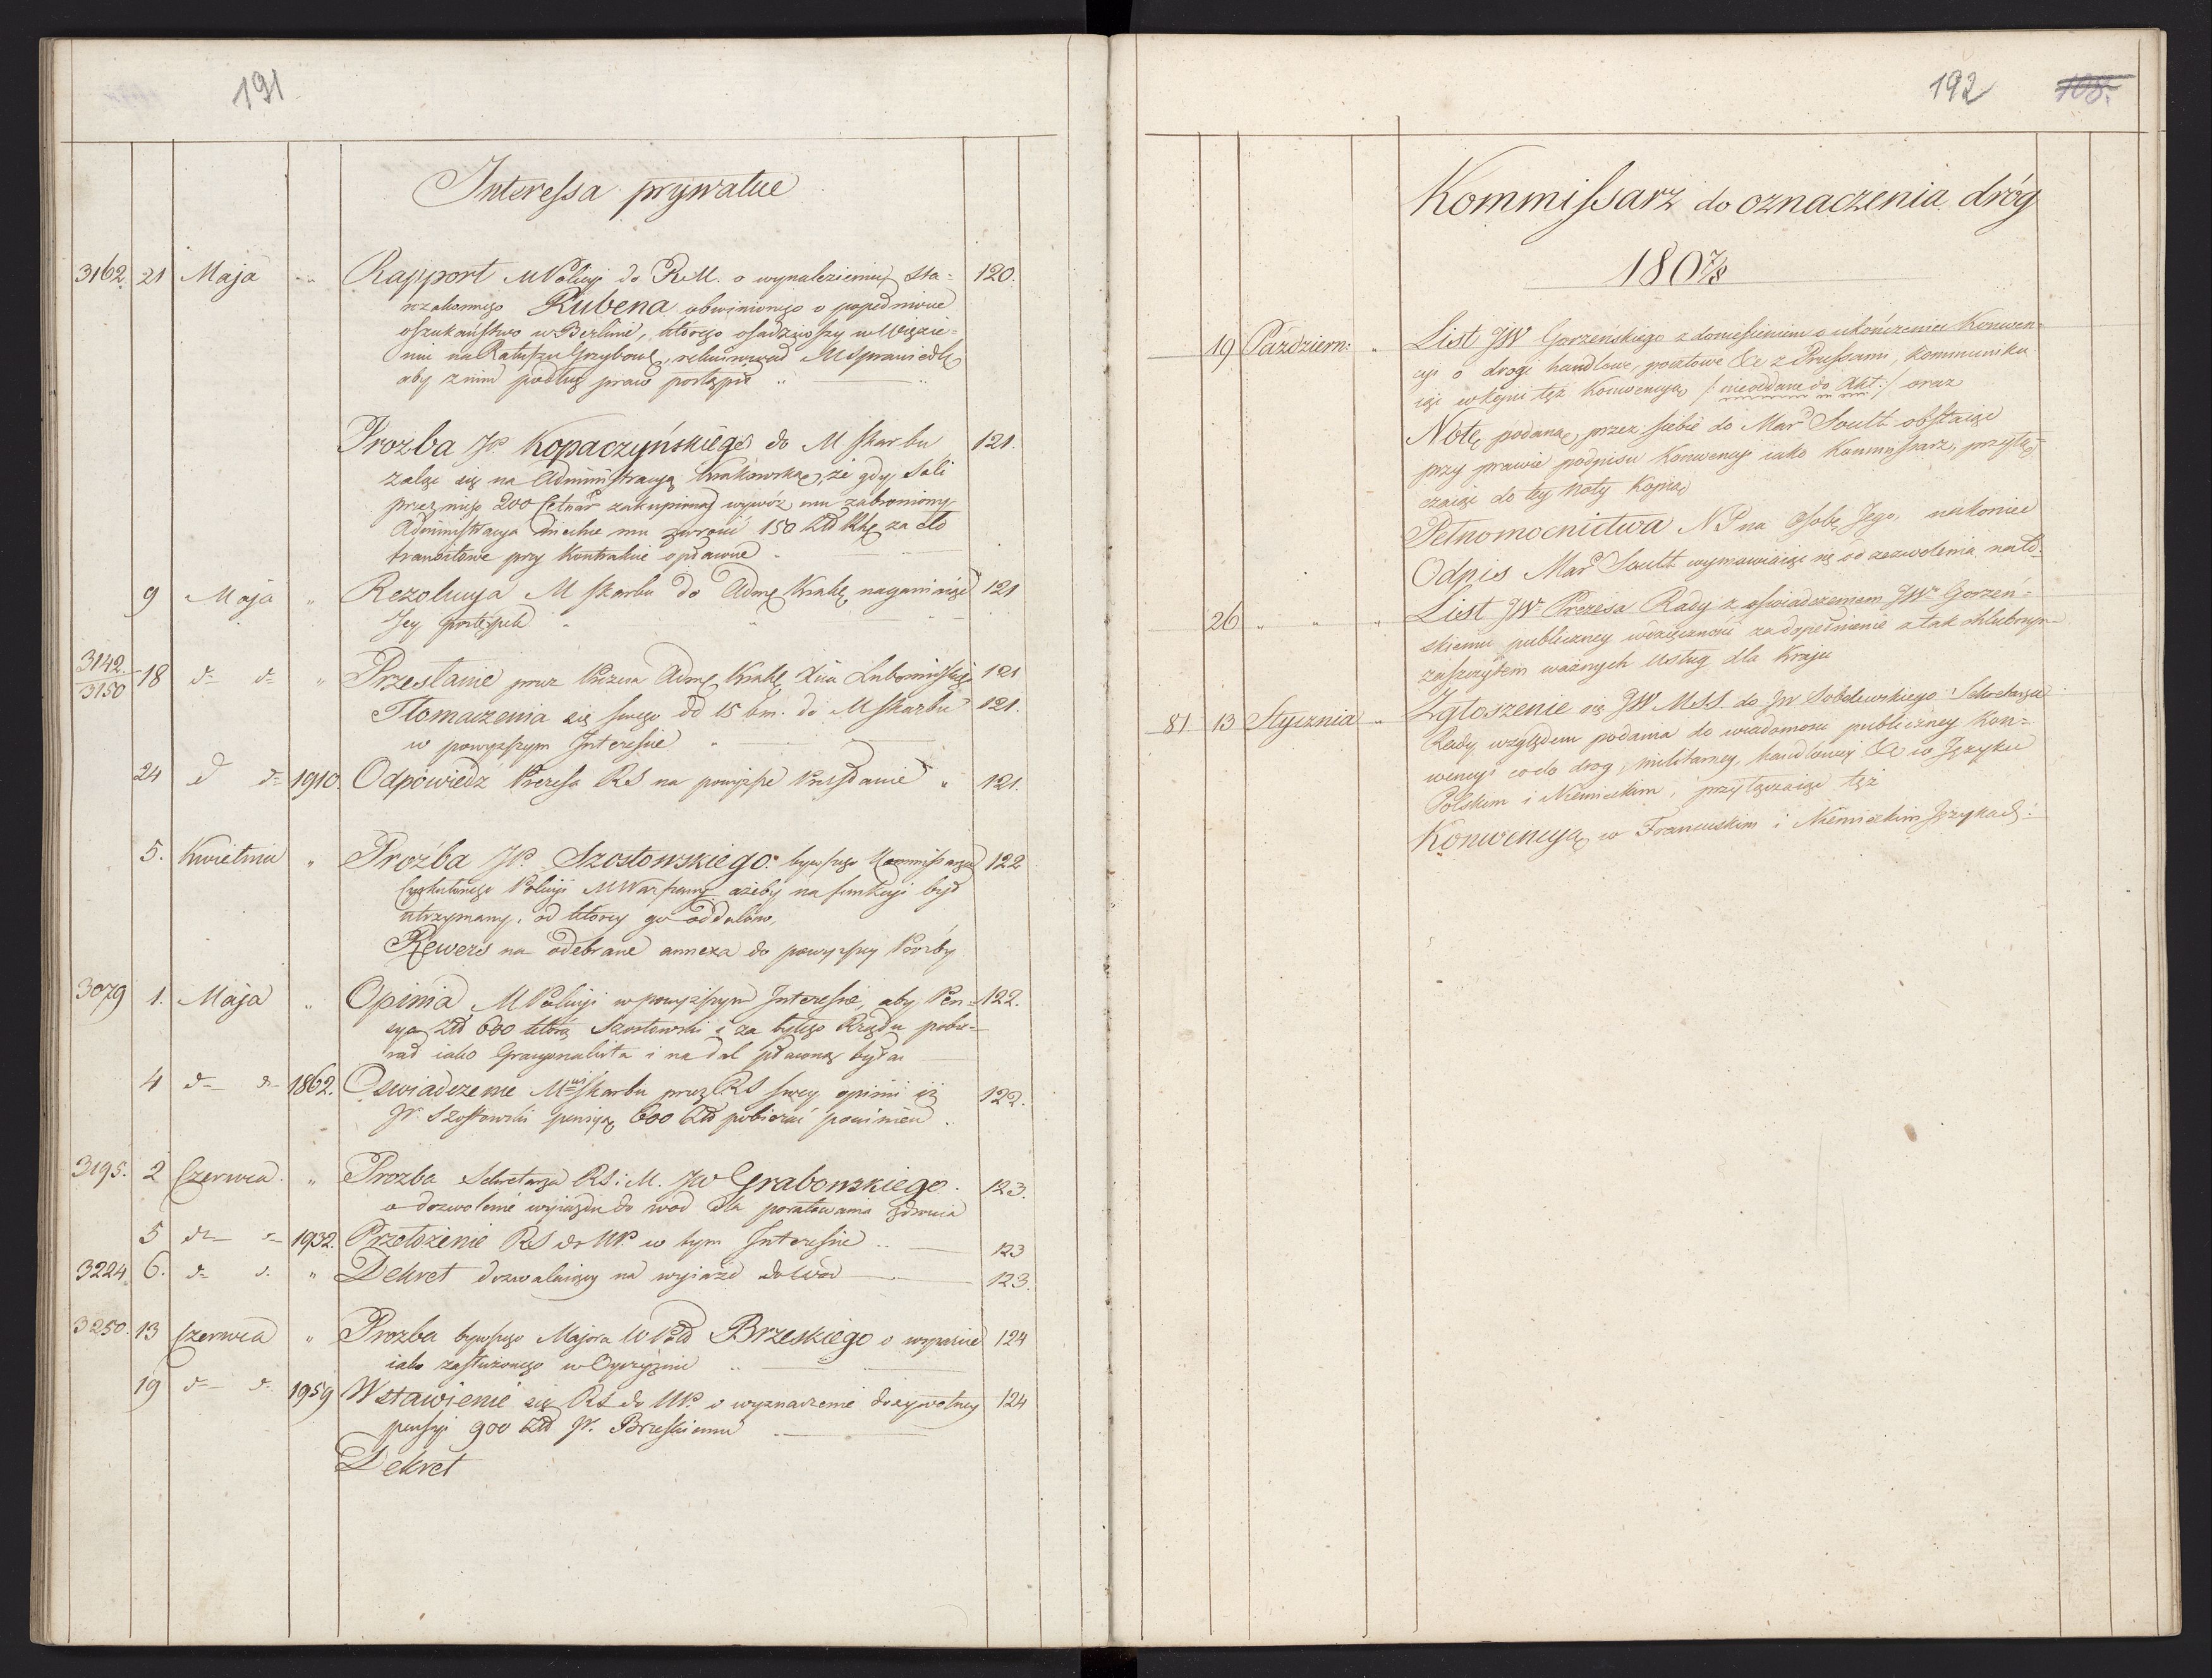 191
Interessa prywatne
3162. 21 Maja " Rapport M Policyi do R.M. o wynalezieniu sta= 120.
rozakonnego Rubena obwinionego o popełnione
oszukaństwo w Berlinie, którego osadziwszy w Więzie=
niu na Ratuszu Grzybows. rekwirował MSprawiedl.
aby z nim podług praw postąpił
Prozba JP. Kopaczyńskiego do M Skarbu 121.
żaląc się na Administracyą Krakowską, że gdy Soli
przez niego 200 Cetnar zakupioney wywóz mu zabroniony
Administracya niechce mu zwrócić 150 Złł za cło
tranzitowe przy Kontrakcie opłacone
9 Maja " Rezolucya M Skarbu do Adm. Krak. naganiaiąca 121
Jey postępek
3142.
3150 18 d= d= " Przesłanie przez Adm. Krak. Xcia Lubomirskiego 121
Tłomaczenia się swego dd 15 bm. do M Skarbu 121.
w powyższym Interesie
24 d d= 1910. Odpowiedź Prezesa RS na powyższe 121.
5. Kwietnia " Proźba JP. Szostowskiego bywszego Kommissarza 122
Cyrkułowego Policyi MWarszawy ażeby na funkcyi był
utrzymany, od którey go oddalono,
Rewers na odebrane annexa do powyższey Prośby
3079 1. Maja " Opinia M Policyi w powyższym Interesie, aby Pen= 122.
sya Złł 600 którą Szostowski i za byłego Rządu pobie=
rał iako Gracyonalista i nadal płaconą była
4 d= d= 1862. Oswiadczenie Mwi Skarbu przez RS swey opinii iż 122.
JP. Szostowski pensyą 600 Złł pobierać powinien.
3195. 2 Czerwca " Prozba Sekretarza RS: M. JW Grabowskiego. 123.
o dozwolenie wyiazdu do wód dla poratowania zdrowia
5 d= d= 1932. Przełożenie RS do NP. w tym Interesie 123
3224 6. d= d. " Dekret dozwalaiący na wyiazd do Wód 123.
3250. 13 Czerwca " Prozba bywszego Majora W Pol Brzeskiego o wsparcie 124
iako zasłużonego w Oyczyźnie
19 d= d= 1959 Wstawienie się RS do NP. o wyznaczenie dożywotney 124
pensyi 900 Złł JP. Brzeskiemu
Dekret
192 108.
Kommissarz do oznaczenia dróg
1807/8
19 Październ: " List JW Gorzeńskiego z doniesieniem o ukończeniu Konwen=
cyi o drogi handlowe, pocztowe &c z Prussami, kommuniku
iąc w kopii też Konwencyą /: nieoddane do Akt :/ oraz
Notę podaną przez siebie do Mar Soult obstaiąc
przy prawie podpisu Konwencyi iako Kommissarz, przyłą=
czaiąc do tey Noty Kopią
Pełnomocnictwa NP na Osobę Jego, nakoniec
Odpis Mar Soult wymawiaiąc się od zezwolenia na to.
26 " " " List JW Prezesa Rady z oświadczeniem JW Gorzeń=
skiemu publiczney wdzięczności za dopełnienie a tak chlubnym
zaszczytem ważnych usług dla Kraju
81 13 Stycznia " Zgłoszenie się JW MSS. do JW Sobolewskiego Sekretarza
Rady względem podania do wiadomości publiczney Kon=
wencyi co do drog, militarney, handlowey &c w Języku
Polskim i Niemieckim, przyłączaiąc też
Konwencyą w Francuskim i Niemieckim Językach: